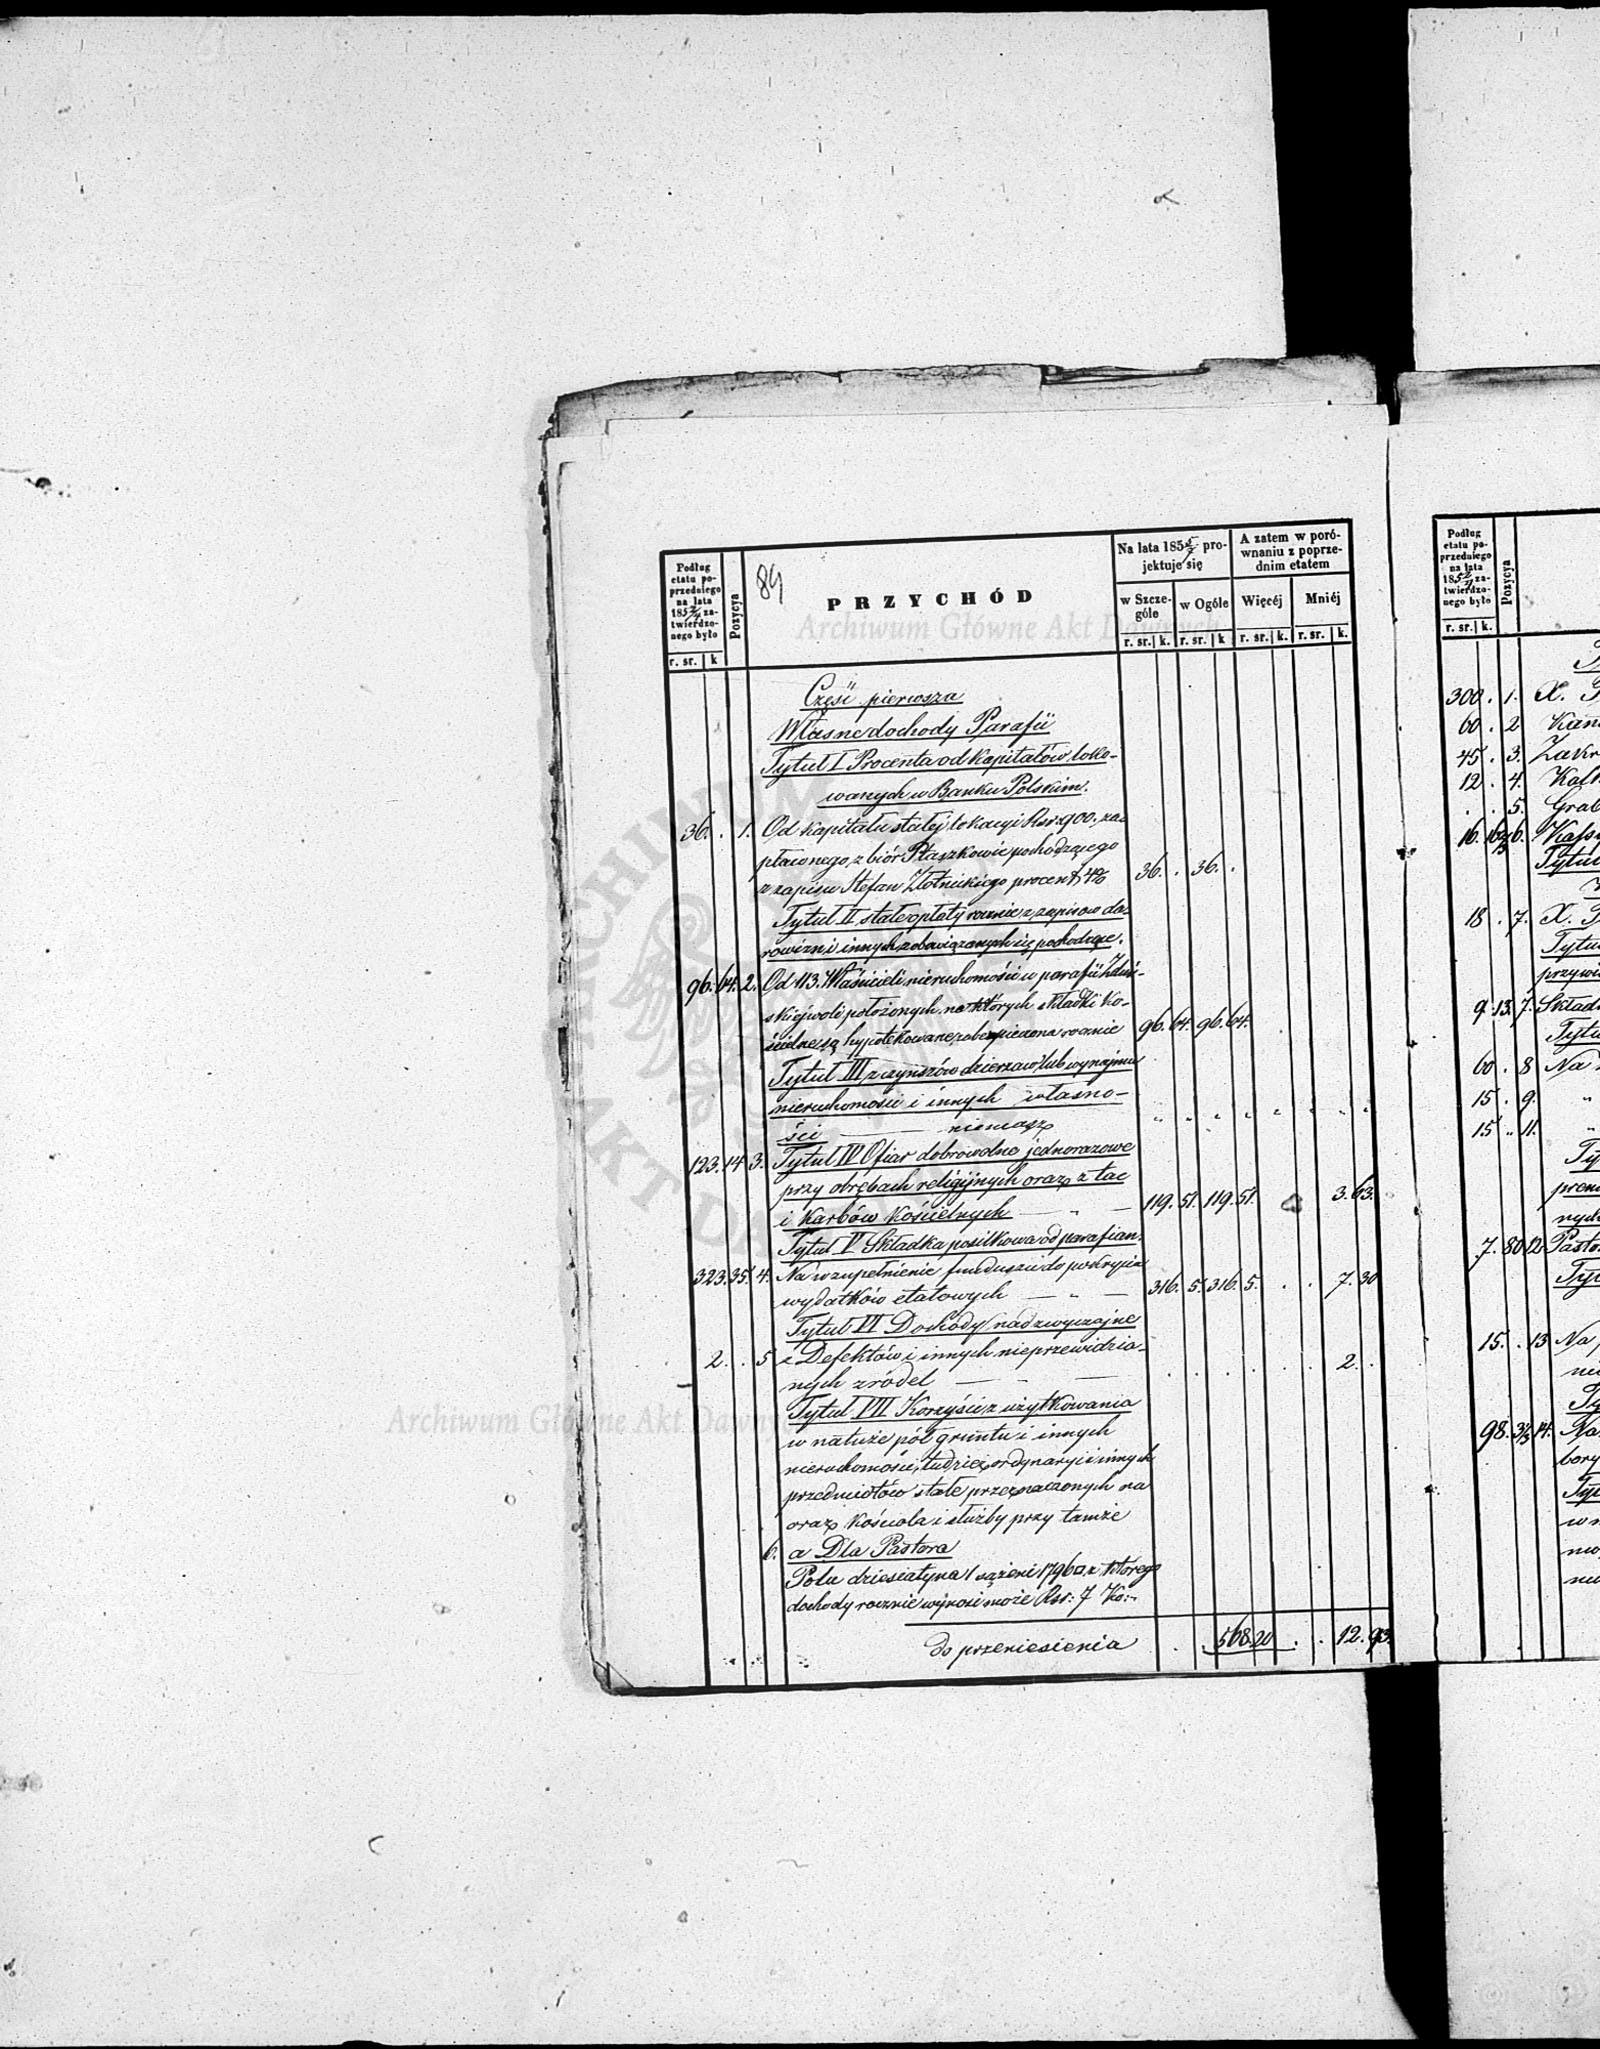 Podług
etatu po-
przedniego
na lata
185 2/4 za-
twierdzo-
nego było
r. sr. k
Pozycya
84
PRZYCHÓD
Na lata 185 5/7 pro-
jektuje się
w Szcze-
góle
w Ogóle
r. sr. k. r. sr. k
A zatem w poró-
wnaniu z poprze-
dnim etatem
Więcéj
Mniéj
r. sr. k. r. sr. k.
Archiwum Główne Akt Dawnych
Część pierwsza
Własne dochody Parafii
Tytuł I Procenta od kapitałów loko-
wanych w Banku Polskim.
36. . 1. Od kapitału stałej lokacyi Rsr: 900. za-
płaconego z biór Ptaszkowic pochodzącego
z zapisu Stefan Złotnickiego procent 4% 36. . 36. .
Tytuł II stałe opłaty rocznie z zapisow da-
rowizn, i innych zobowiązanych się pochodzące.
96. 64. 2. Od 113. Właścicieli nieruchomości w parafii Zduń-
skiéjwoli położonych na których składki ko-
ścielne są hypotekowane zabezpieczona rocznie 96. 64. 96. 64.
Tytuł III z czynszów dzierzaw lub wynajmu
nieruchomości i innych własno-
ści niemasz
123. 14 3. Tytuł IV Ofiar dobrowolne jednorazowe
przy obrębach religijnych oraz z tac
i karbów kościelnych 119. 51. 119. 51. 3. 63.
Tytuł V Składka posiłkowa od parafian.
323. 35. 4. Na wzupełnienie funduszu do pokrycia
wydatków etatowych 316. 5. 316. 5. . . 7. 30
Tytuł VI Dochody nadzwyczajne
2. . 5 z Defektów i innych nieprzewidzia-
nych zródeł 2. .
Tytuł VII Korzyści z użytkowania
w naturze pól gruntu i innych
nieruchomości, tudzież ordynaryi i innych
przedmiotów stałe przeznaczonych na
oraz kościoła i służby przy tamże
6. a Dla Pastora
Polu dziesiatyna 1 sążeni 1796 z którego
dochody rocznie wynosi może Rsr: 7 Ko:
do przeniesienia 568. 20 . . 12. 93.
Archiwum Główne Akt Dawnych
ARCHIWUM
AKT DA
Podług
etatu po-
przedniego
na lata
185 2/4 za-
twierdzo-
nego było
r. sr. k.
Pozycya
300 . 1. X. P
60 . 2 Kan
45 . 3. Zakr
12 . 4. Kalk
. . 5. Grab
16. 16 2/3 6.
Tytuł
18 . 7. X. P
Tytu
przywi
9. 13. 7. Składk
Tytu
60 . 8 Na
15 . 9. "
15 " 11. "
Ty
nych
7. 80 12. Pasto
Tyt
15. . 13 Na
nie
Ty
98. 3 1/3 14. Na
bory
Tyt
w n